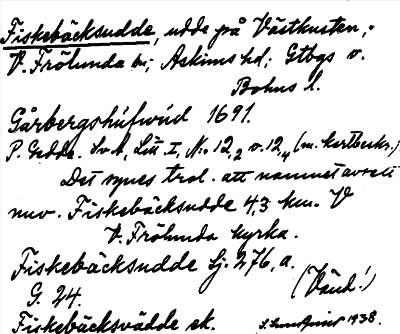 Fiskebäcksudde, udde på Västkusten,
V. Frölunda sn; Askims hd; Gtbgs o.
Bohus l.
Gårbergshúfwúd 1691.
P. Gedda. SvA, Litt I, No 12,2 o. 12,4 (m. kartbeskr.)
Det synes trol. att namnet avsett
nuv. Fiskebäcksudde 4,3 km. V
V. Frölunda kyrka.
Fiskebäcksudde Sj. 276, a.
(Vänd!)
G. 24.
Fiskebäcksvädde ek. 1938.